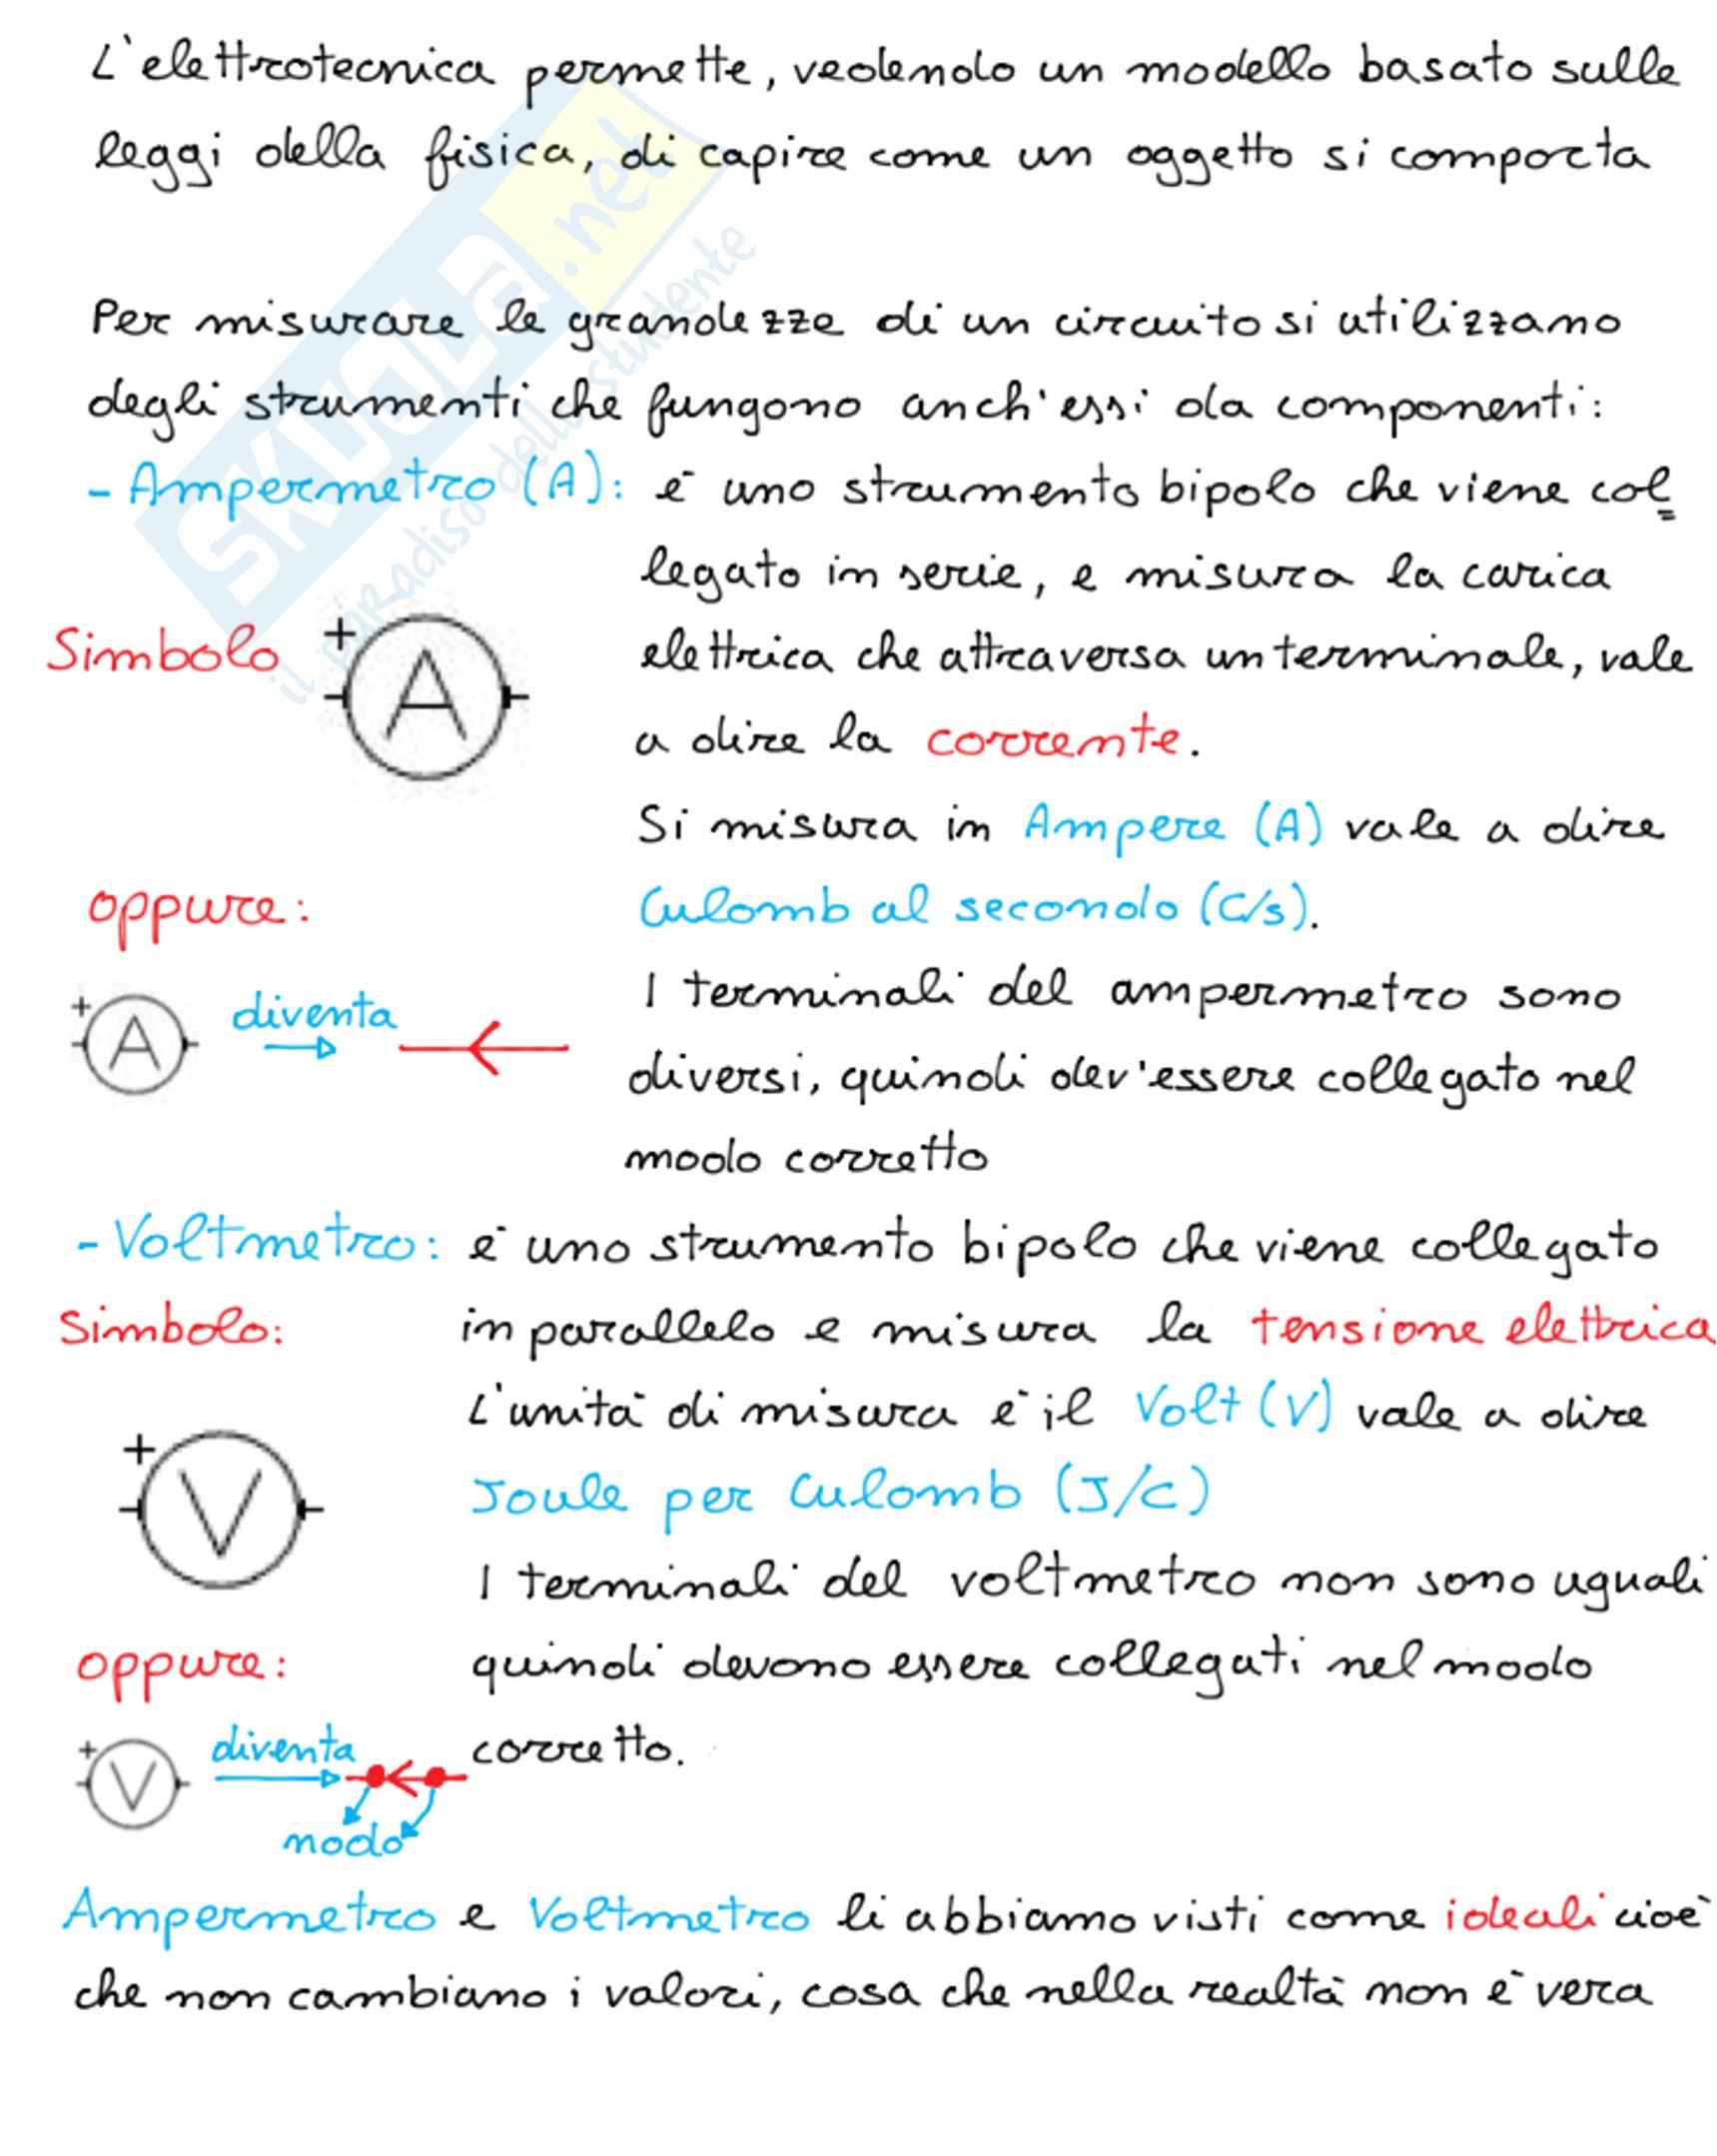 L'elettrotecnica permette, vedendo un modello basato sulle
leggi della fisica, di capire come un oggetto si comporta
Per misurare le grandezze di un circuito si utilizzano
degli strumenti che fungono anch'essi da componenti:
- Ampermetro (A): è uno strumento bipolo che viene col=
legato in serie, e misura la carica
Simbolo
+
A
elettrica che attraversa un terminale, vale
a dire la corrente.
Si misura in Ampere (A) vale a dire
oppure:
Culomb al secondo (C/s).
+
A
diventa
I terminali del ampermetro sono
diversi, quindi dev'essere collegato nel
modo corretto
- Voltmetro: è uno strumento bipolo che viene collegato
Simbolo:
in parallelo e misura la tensione elettrica
L'unità di misura è il Volt (V) vale a dire
+
V
Joule per Culomb (J/C)
I terminali del voltmetro non sono uguali
oppure:
quindi devono essere collegati nel modo
corretto.
+
V
diventa
nodo
Ampermetro e Voltmetro li abbiamo visti come ideali cioè
che non cambiano i valori, cosa che nella realtà non è vera
SKUOLA.net
il paradiso dello studente